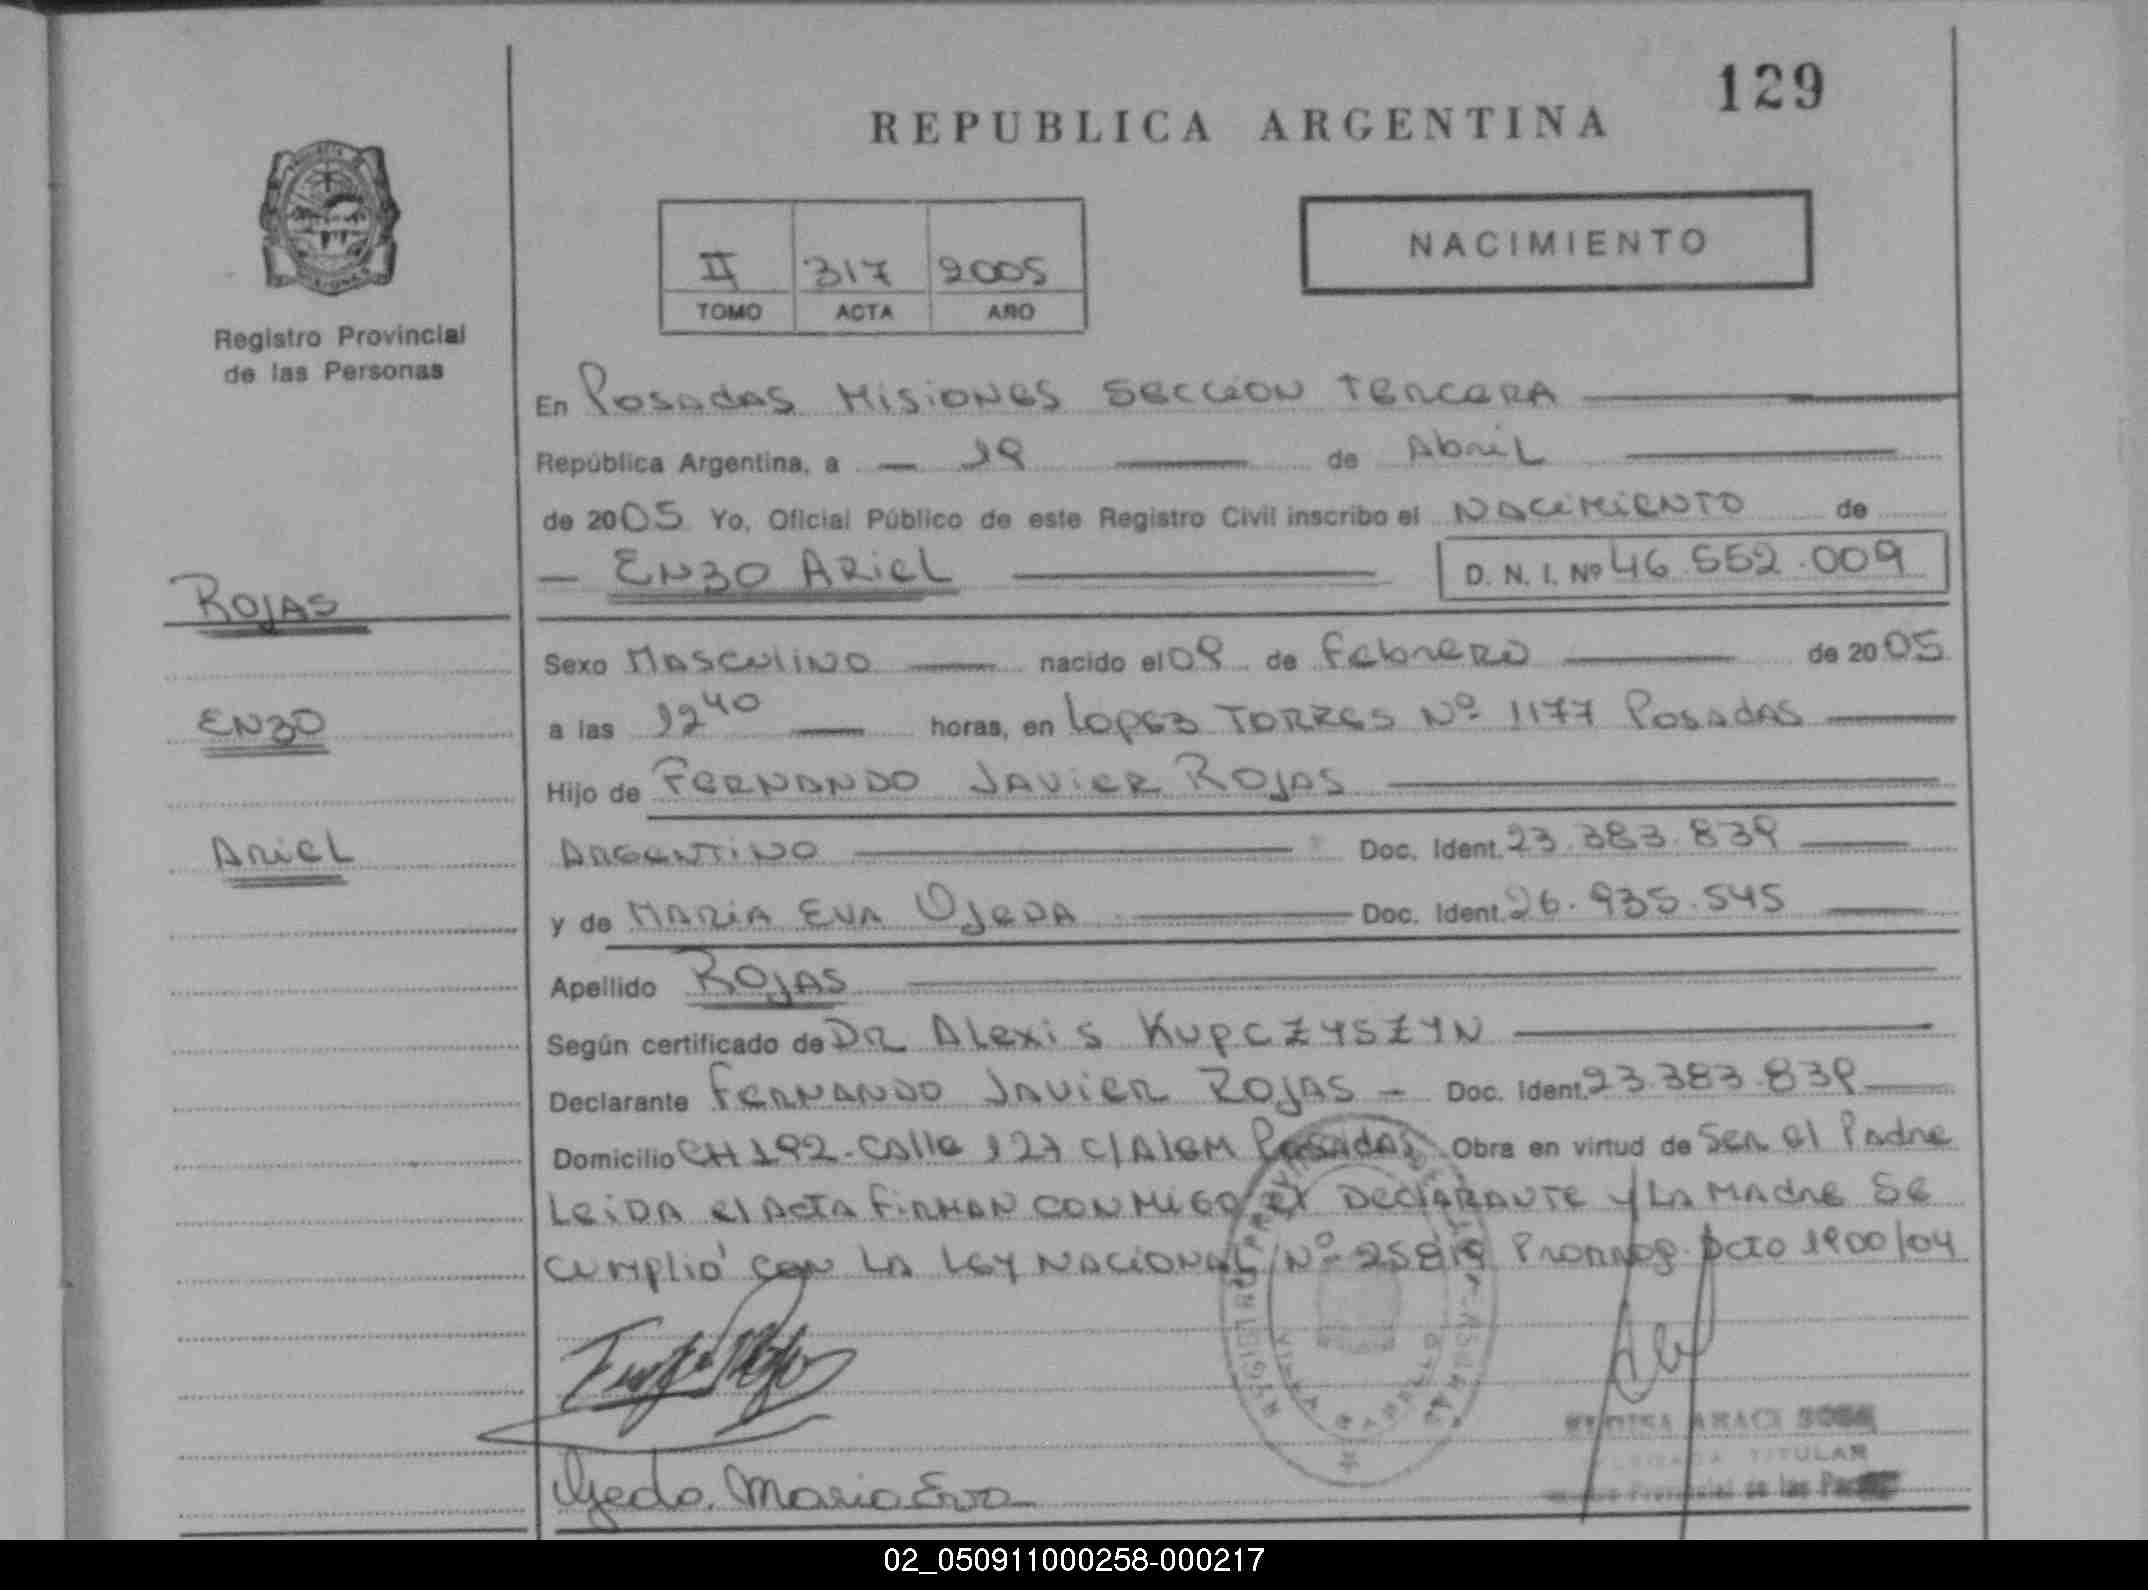 129
REPUBLICA ARGENTINA
NACIMIENTO
II 317 2005
TOMO ACTA AÑO
Registro Provincial
de las Personas
En Posadas Misiones Seccion Tercera
República Argentina, a 19 de Abril
de 2005 Yo, Oficial Público de este Registro Civil inscribo el Nacimiento de
Enzo Ariel D. N. I. Nº 46.552.009
Rojas
Enzo
Ariel
Sexo Masculino nacido el 09 de Febrero de 2005
a las 12 40 horas, en Lopez Torres Nº 1177 Posadas
Hijo de Fernando Javier Rojas
Argentino Doc. Ident. 23.383.839
y de Maria Eva Ojeda Doc. Ident. 26.935.545
Apellido Rojas
Según certificado de Dr Alexis Kupczyszyn
Declarante Fernando Javier Rojas - Doc. Ident. 23.383.839
Domicilio CH 192 - Calle 127 c/Alem Posadas Obra en virtud de Ser el Padre
Leida el acta firman conmigo el Declarante y la Madre Se
cumplió con la Ley Nacional Nº 25819 Prorrog. Dcto 1900/04
Ojeda Maria Eva
ARACI SOSA
TITULAR
Provincial de las
02_050911000258-000217